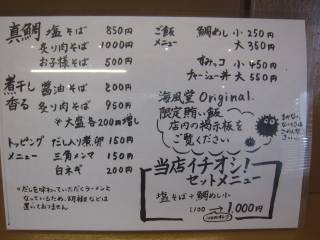 真鯛 塩そば 850円
炙り肉そば 1000円
お子様そば 500円
煮干し香る 醤油そば 800円
炙り肉そば 950円
※大盛各200円増し
トッピングメニュー だし入り煮卵 150円
三角メンマ 150円
白ネギ 200円
※だしを味わっていただくラーメンと
なっているため、胡椒などは
置いておりません
ご飯メニュー 鯛めし 小 250円
大 350円
すみっコ 小 250円
チャーシュー丼 大 550円
海風堂 Original.
限定賄い飯
店内の掲示板を
ご覧ください
当店イチオシ!
セットメニュー
塩そば+鯛めし小
1100 → 1,000円